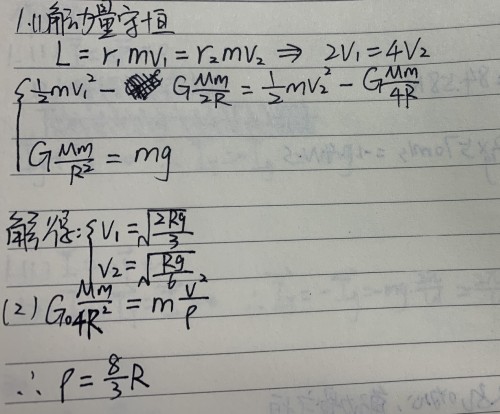 1.(1)解:动量守恒
L = r₁mv₁ = r₂mv₂ ⇒ 2v₁ = 4v₂
{ ½mv₁² - G Mm/2R = ½mv₂² - G Mm/4R
G Mm/R² = mg
解得: { v₁ = √(2Rg/3)
v₂ = √(Rg/6)
(2) G₀ Mm/4R² = m v²/ρ
∴ ρ = 8/3 R